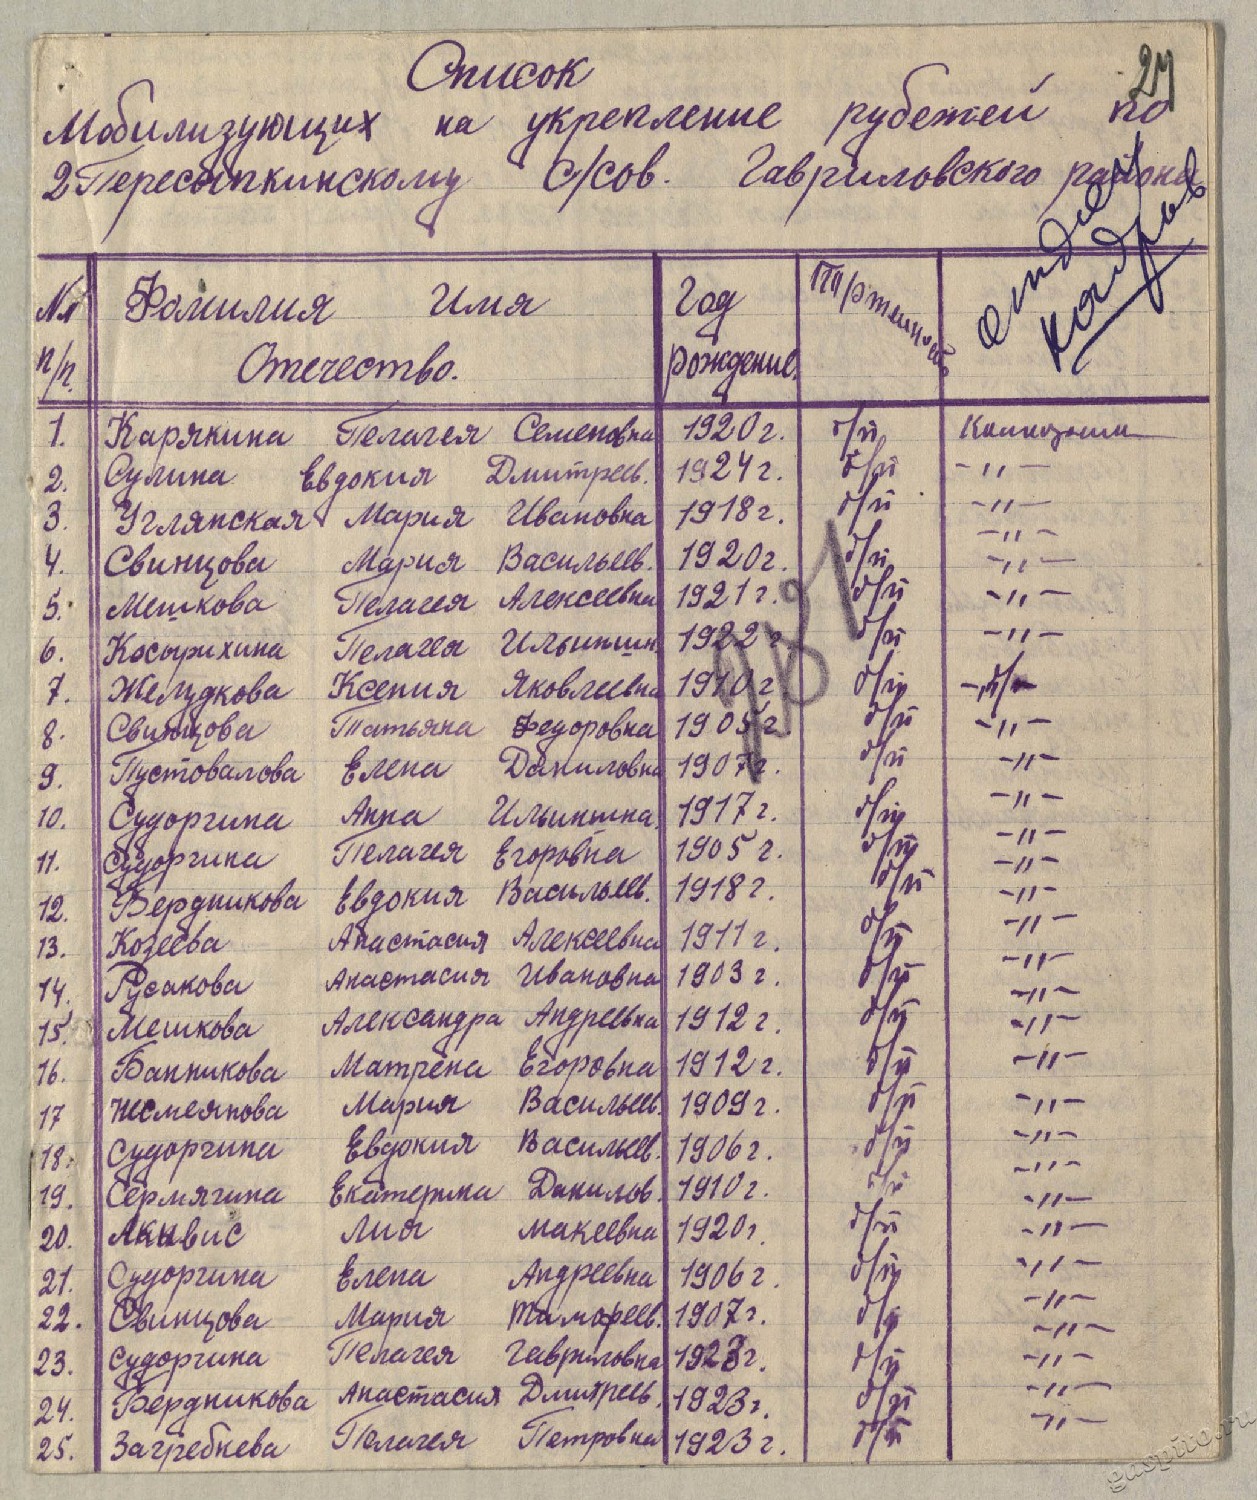 Список
27
Мобилизующих на укрепление рубежей по
2 Пересыпкинскому с/сов. Гавриловского района
отдел
кадров
№№ Фамилия Имя Год Партейность
п/п. Отечество. рождение.
1. Карякина Пелагея Семеновна 1920 г. б/п
2. Сулина Евдокия Дмитреев. 1924 г. б/п -〃-
3. Углянская Мария Ивановна 1918 г. б/п -〃-
4. Свинцова Мария Васильев. 1920 г. б/п -〃-
5. Мешкова Пелагея Алексеевна 1921 г. б/п -〃-
6. Косырихина Пелагея Ильинишн. 1922 г. б/п -〃-
7. Желудкова Ксения Яковлеевна 1910 г. б/п
8. Свинцова Татьяна Федоровна 1905 г. б/п -〃-
9. Пустовалова Елена Даниловна 1907 г. б/п -〃-
10. Судоргина Анна Ильинишна. 1917 г. б/п -〃-
11. Судоргина Пелагея Егоровна 1905 г. б/п -〃-
12. Бердникова Евдокия Васильев. 1918 г. б/п -〃-
13. Козеева Анастасия Алексеевна 1911 г. б/п -〃-
14. Русакова Анастасия Ивановна 1903 г. б/п -〃-
15. Мешкова Александра Андреевна 1912 г. б/п -〃-
16. Банникова Матрена Егоровна 1912 г. б/п -〃-
17 Мария Васильев. 1909 г. б/п -〃-
18. Судоргина Евдокия Васильев. 1906 г. б/п -〃-
19. Сермягина Екатерина Данилов. 1910 г. б/п -〃-
20. Лия Макеевна 1920 г. б/п -〃-
21. Судоргина Елена Андреевна 1906 г. б/п -〃-
22. Свинцова Мария Тимофеев. 1907 г. б/п -〃-
23. Судоргина Пелагея Гавриловна 1923 г. б/п -〃-
24. Бердникова Анастасия Дмитреев. 1923 г. б/п -〃-
25. Загребнева Пелагея Петровна 1923 г. б/п -〃-
gaspito.ru